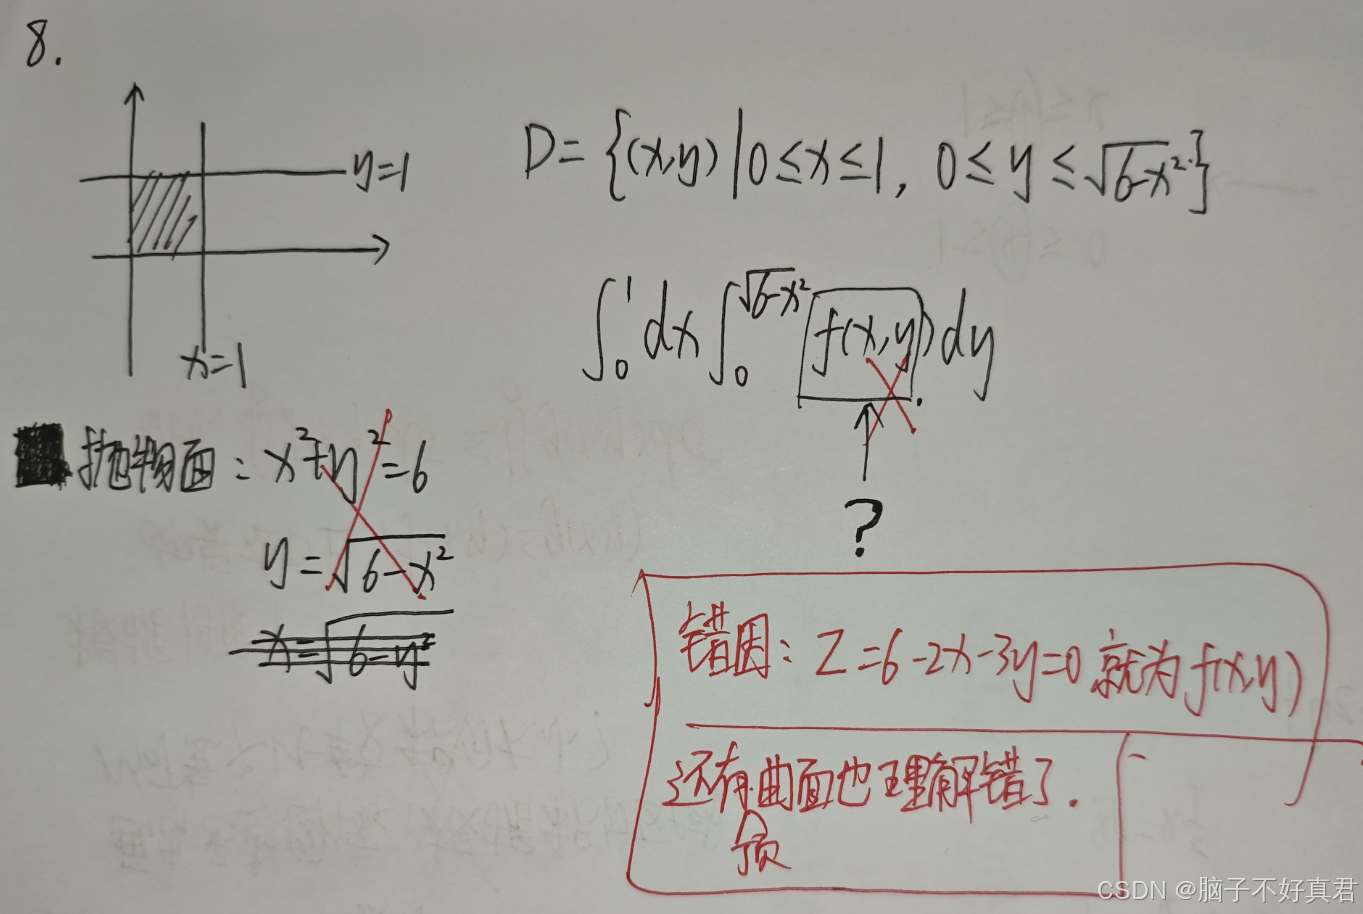 8.
y=1
x=1
D={(x,y)|0≤x≤1, 0≤y≤√6-x²}
∫₀¹dx∫₀^√6-x² f(x,y)dy
?
抛物面: x²+y²=6
y=√6-x²
x=√6-y²
错因: Z=6-2x-3y=0 就为f(x,y)
还有曲面也理解错了.
CSDN @脑子不好真君